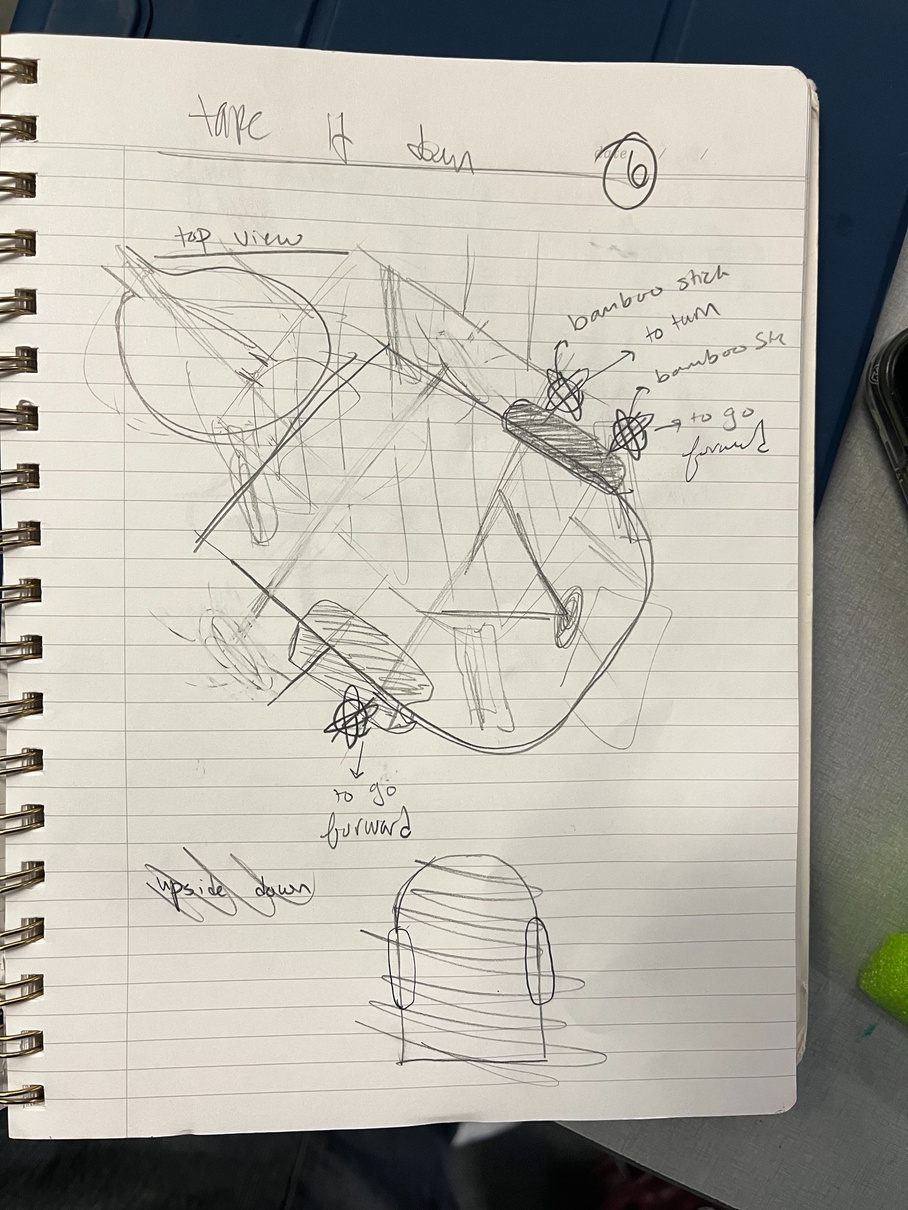 tape it down
date / /
6
top view
bamboo stick
to turn
bamboo sti
to go
forward
to go
forward
upside down